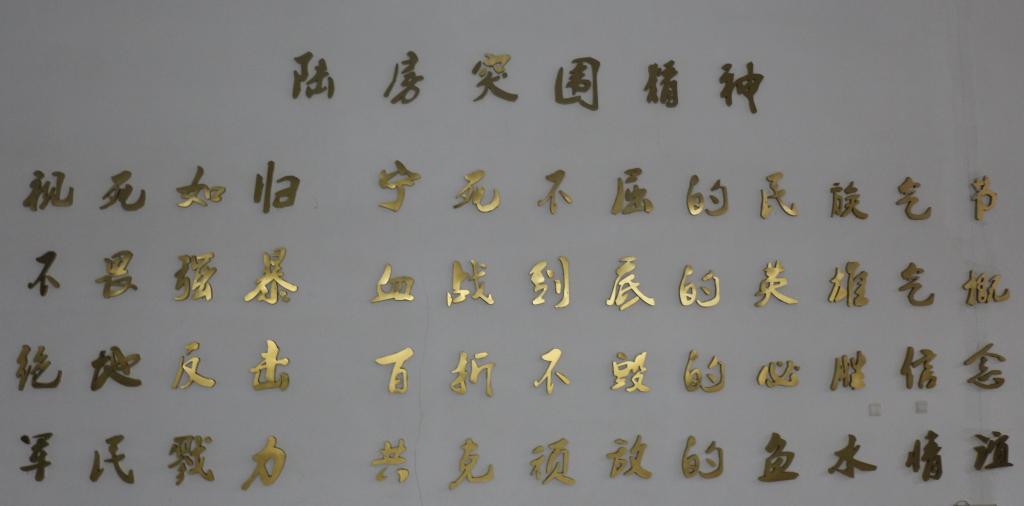 陆房突围精神
视死如归 宁死不屈的民族气节
不畏强暴 血战到底的英雄气概
绝地反击 百折不毁的必胜信念
军民戮力 共克顽敌的鱼水情谊